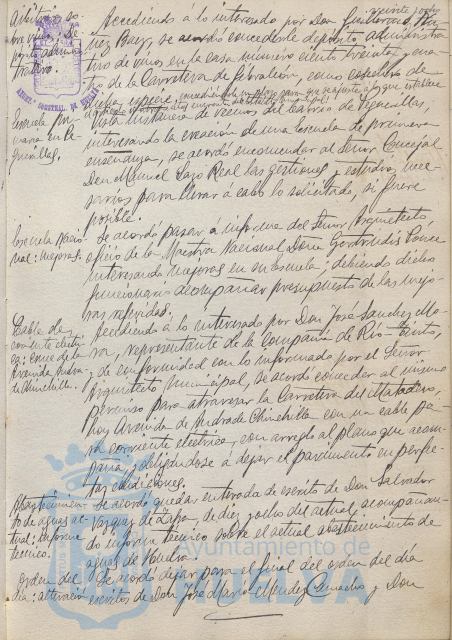 veinte ocho
Accediendo á lo interesado por Don Guillermo
Baez, se acordó concederle depósito administra
tivo de vinos en la casa número ciento treinta y cua
tro de la Carretera de
especie
Vista instancia de vecinos del Barrio de Peguerillas,
interesando la creación de una Escuela de primera
enseñanza, se acordó encomendar al Señor Concejal
Don Manuel Lazo Real las gestiones y estudios nece-
sarios para llevar á cabo lo solicitado, si fuere
posible.
Escuela pri-
maria en Pe-
guerillas.
Se acordó pasar á informe del Señor Arquitecto,
oficio de la Maestra Nacional Dona Gertrudis Ponce
interesando mejoras en su Escuela; debiendo dicho
funcionario acompañar presupuesto de las mejo-
ras referidas.
Escuela Nacio-
nal: mejoras.
Accediendo á lo interesado por Don José Sanchez Mo-
ra, representante de la Compañia de Rio-Tinto,
y de conformidad con lo informado por el Señor
Arquitecto Municipal, se acordó conceder al mismo
permiso para atravesar la Carretera del Matadero,
hoy Avenida de Andrade Chinchilla con un cable pa-
ra corriente eléctrica, con arreglo al plano que acom-
paña, y obligándose á dejar el pavimento en perfec-
tas condiciones.
Cable de
corriente eléctri-
ca: cruce de la
Avenida Andra-
de Chinchilla.
Se acordó quedar enterada de escrito de Don Salvador
Vazquez de Zafra, de diez y ocho del actual, acompañan-
do informe técnico sobre el actual abastecimiento de
aguas de Huelva.
Abastecimien-
to de aguas ac-
tual: informe
técnico.
Se acordó dejar para el final del orden del día
escritos de Don José Maria Mendez Camacho y Don
Orden del
día: alteración
Ayuntamiento de
HUELVA